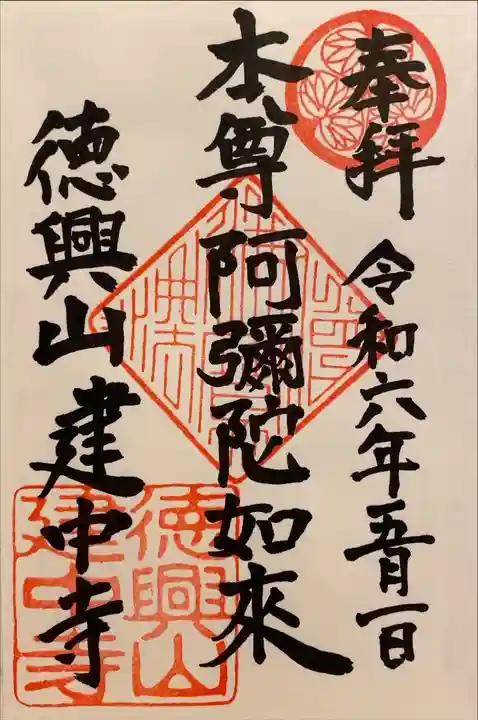 奉拝 令和六年五月一日
本尊 阿彌陀如來
徳興山 建中寺
徳興山
建中寺